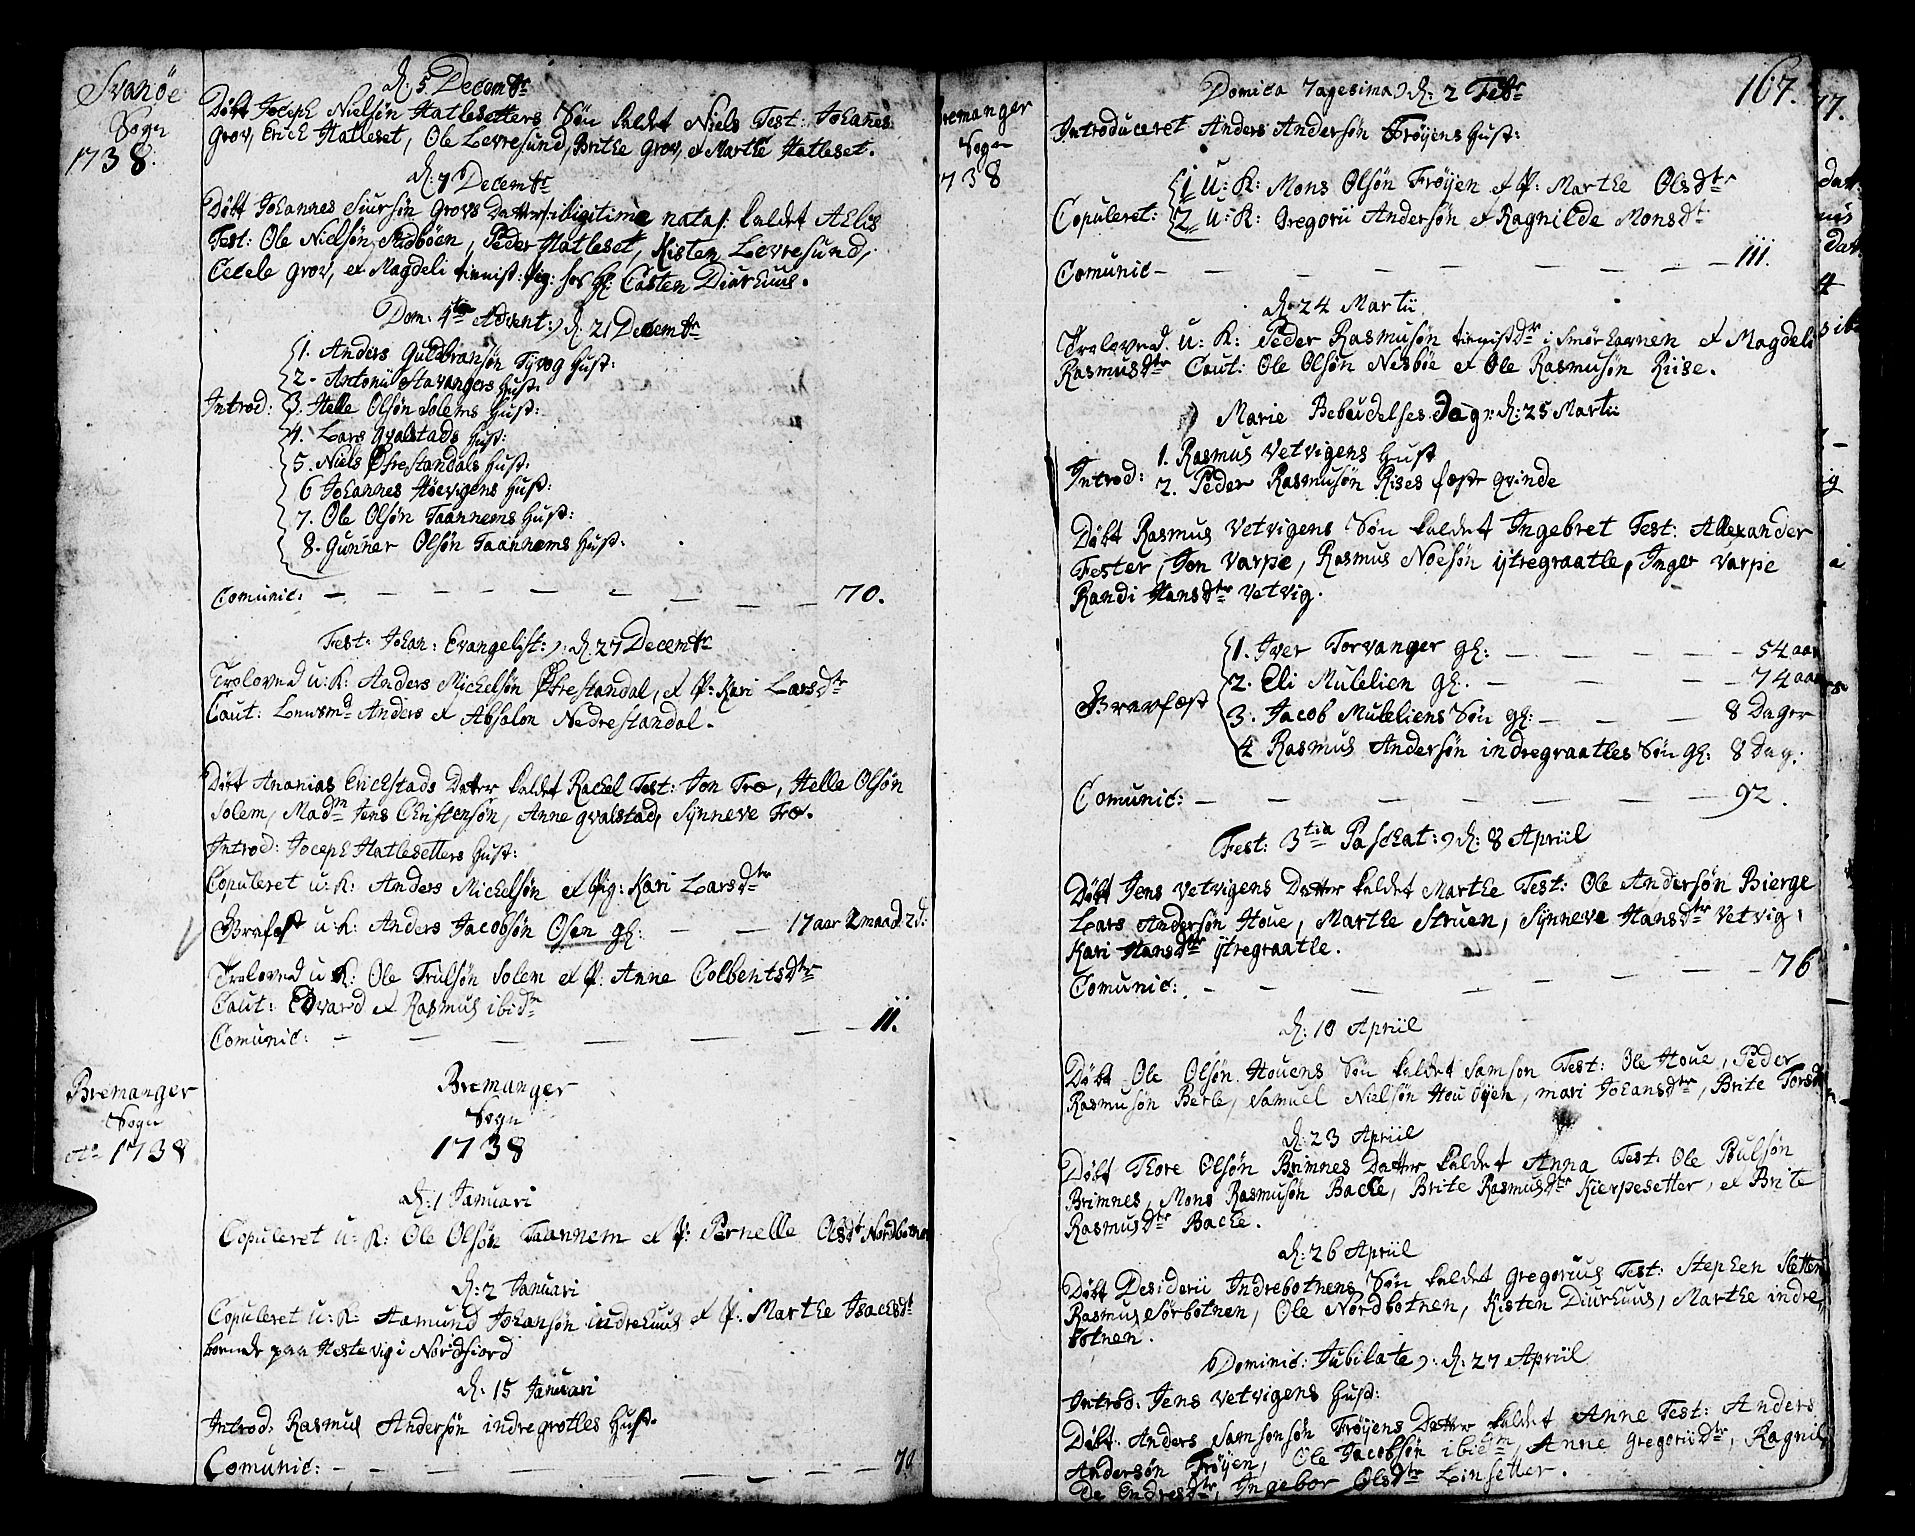 Svanöe
Sogn
1738.
d. 5. Decembr
Döbt Joceph Nielsön Hatlesetters Sön kaldet Niels Test: Johanes
Grov, Erich Hatleset, Ole Levresund, Brithe Grov, et Marthe Hatleset.
d. 7 Decembr
Döbt Johannes Siursön Grovs Datter illigitime nata kaldet Aelis
Test: Ole Nielsön Midböen, Peder Hatleset, Kisten Levresund,
Cecele Grov, et Magdeli tienist: Pig: hos Hr: Casten Diurhuus.
Dom: 4te Advent: d. 21 Decembr
1. Anders Guldbransön Tyvog Hust:
2. Antonii Stavangers Hust:
Introd: 3. Helle Olsön Solems Hust:
4. Lars Qvalstads Hust:
5. Niels Öfrestandals Hust:
6 Johannes Höevigens Hust:
7. Ole Olsön Taannems Hust:
8. Gunner Olsön Taannems Hust:
Comunic: — — — — — — — 70.
Fest: Johan: Evangelist: d: 27 Decembr
Troloved u: K: Anders Michelsön Öfrestandal, et P: Kari Larsdtr
Caut: Lensmd Anders et Absalon Nedrestandal.
Döbt Ananias Enchstads Datter kaldet Rachel Test: Jon Træ, Helle Olsön
Solem, Madm Jens Christensön, Anne Qvalstad, Synneve Træ.
Introd: Joceph Hatlesetters Hust:
Copuleret u: K: Anders Michelsön et Pig: Kari Larsdtr
Gravfæst u: K: Anders Jacobsön Osen gl: — — 17 aar 2 maand 2 d:
Troloved u K: Ole Trulsön Solen et P. Anne Colbentsdtr
Caut: Edvard et Rasmus ibidm
Comunic: — — — — — — 11.
Bremanger
Sogn
Ao 1738
Bremanger
Sogn
1738
d: 1 Januari
Copuleret u: K: Ole Olsön Taannem et P: Pernelle Olsdt Nordbotnen
d: 2 Januari
Copuleret u: K: Aamund Johansön indrehuus et P: Marthe Isachsdt
boende paa Hestevig i Nordfiord
d: 15 Januari
Introd. Rasmus Andersön indregrotles Hust.
Comunic: — — — — — — — 70
Bremanger
Sogn
1738
167.
Domica 7agesima d: 2 Febr
Introduceret Anders Andersön Fröyens Hust:
1 U: K: Mons Olsön Fröyen et P: Marthe Olsdtr
Copuleret: 2 U: K: Gregorii Andersön et Ragnilde Monsdt
Comunic — — — — — — — — 111.
d: 24 Martii
Troloved U: K: Peder Rasmusön tienistdr i Smörhavnen et Magdeli
Rasmusdtr Caut: Ole Olsön Nesböe et Ole Rasmusön Riise.
Marie Bebudelses Dag: d: 25 Martii
1. Rasmus Vetvigens Hust
Introd: 2. Peder Rasmusön Rises fæste qvinde
Döbt Rasmus Vetvigens Sön kaldet Ingebret Test: Allexander
Fester, Jon Varpe, Rasmus Noesön ÿtregraatle, Inger Varpe
Randi Hansdtr Vetvig.
1. Iver Torvanger gl: — — — — 54 aar
2. Eli Mulelien gl: — — — — 74 aar
Gravfæst 3. Jacob Muleliens Sön gl: — — — 8 Dager
4 Rasmus Andersön indregraatles Sön gl: 8 Dag:
Comunic: — — — — — — — 92.
Fest: 3tia Paschat: d: 8 Apriil
Döbt Jens Vetvigens Datter kaldet Marthe Test: Ole Andersön Bierge
Lars Andersön Houe, Marthe Struen, Synneve Hansdtr Vetvig,
Kari Hansdtr ÿtregraatle.
Comunic: — — — — — — — 76
d: 10 Apriil
Döbt Ole Olsön Houens Sön kaldet Samson Test: Ole Houe, Peder
Rasmusön Berle, Samuel Nielsön Houöyen, Mari Johansdtr, Brite Torsd
d: 23 Apriil
Döbt Thore Olsön Brimnes Datter kaldet Anna Test: Ole Poulsön
Brimnes, Mons Rasmusön Backe, Brite Rasmusdtr Kierpesetter, et Brite
Rasmusdtr Backe.
d: 26 Apriil
Döbt Desiderii Indrebotnens Sön kaldet Gregorius Test: Stephen Sletten
Rasmus Sörbotnen, Ole Nordbotnen, Kisten Diurhuus, Marthe indre
botnen.
Dominic: Jubilate d: 27 Apriil
Introd. Jens Vetvigens Hust:
Döbt. Anders Samsonsön Fröyens Datter kaldet Anne Test: Anders
Andersön Fröyen, Ole Jacobsön ibidm, Anne Gregoriidtr, Ragnil
de Endresdtr, Ingebor Olsdtr Linsetter.